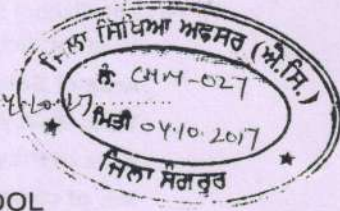 ਜਿਲਾ ਸਿੱਖਿਆ ਅਫਸਰ (ਐ.ਸਿ.)
ਨੰ: CMM-027
ਮਿਤੀ 04.10.2017
ਜਿਲਾ ਸੰਗਰੂਰ
OOL